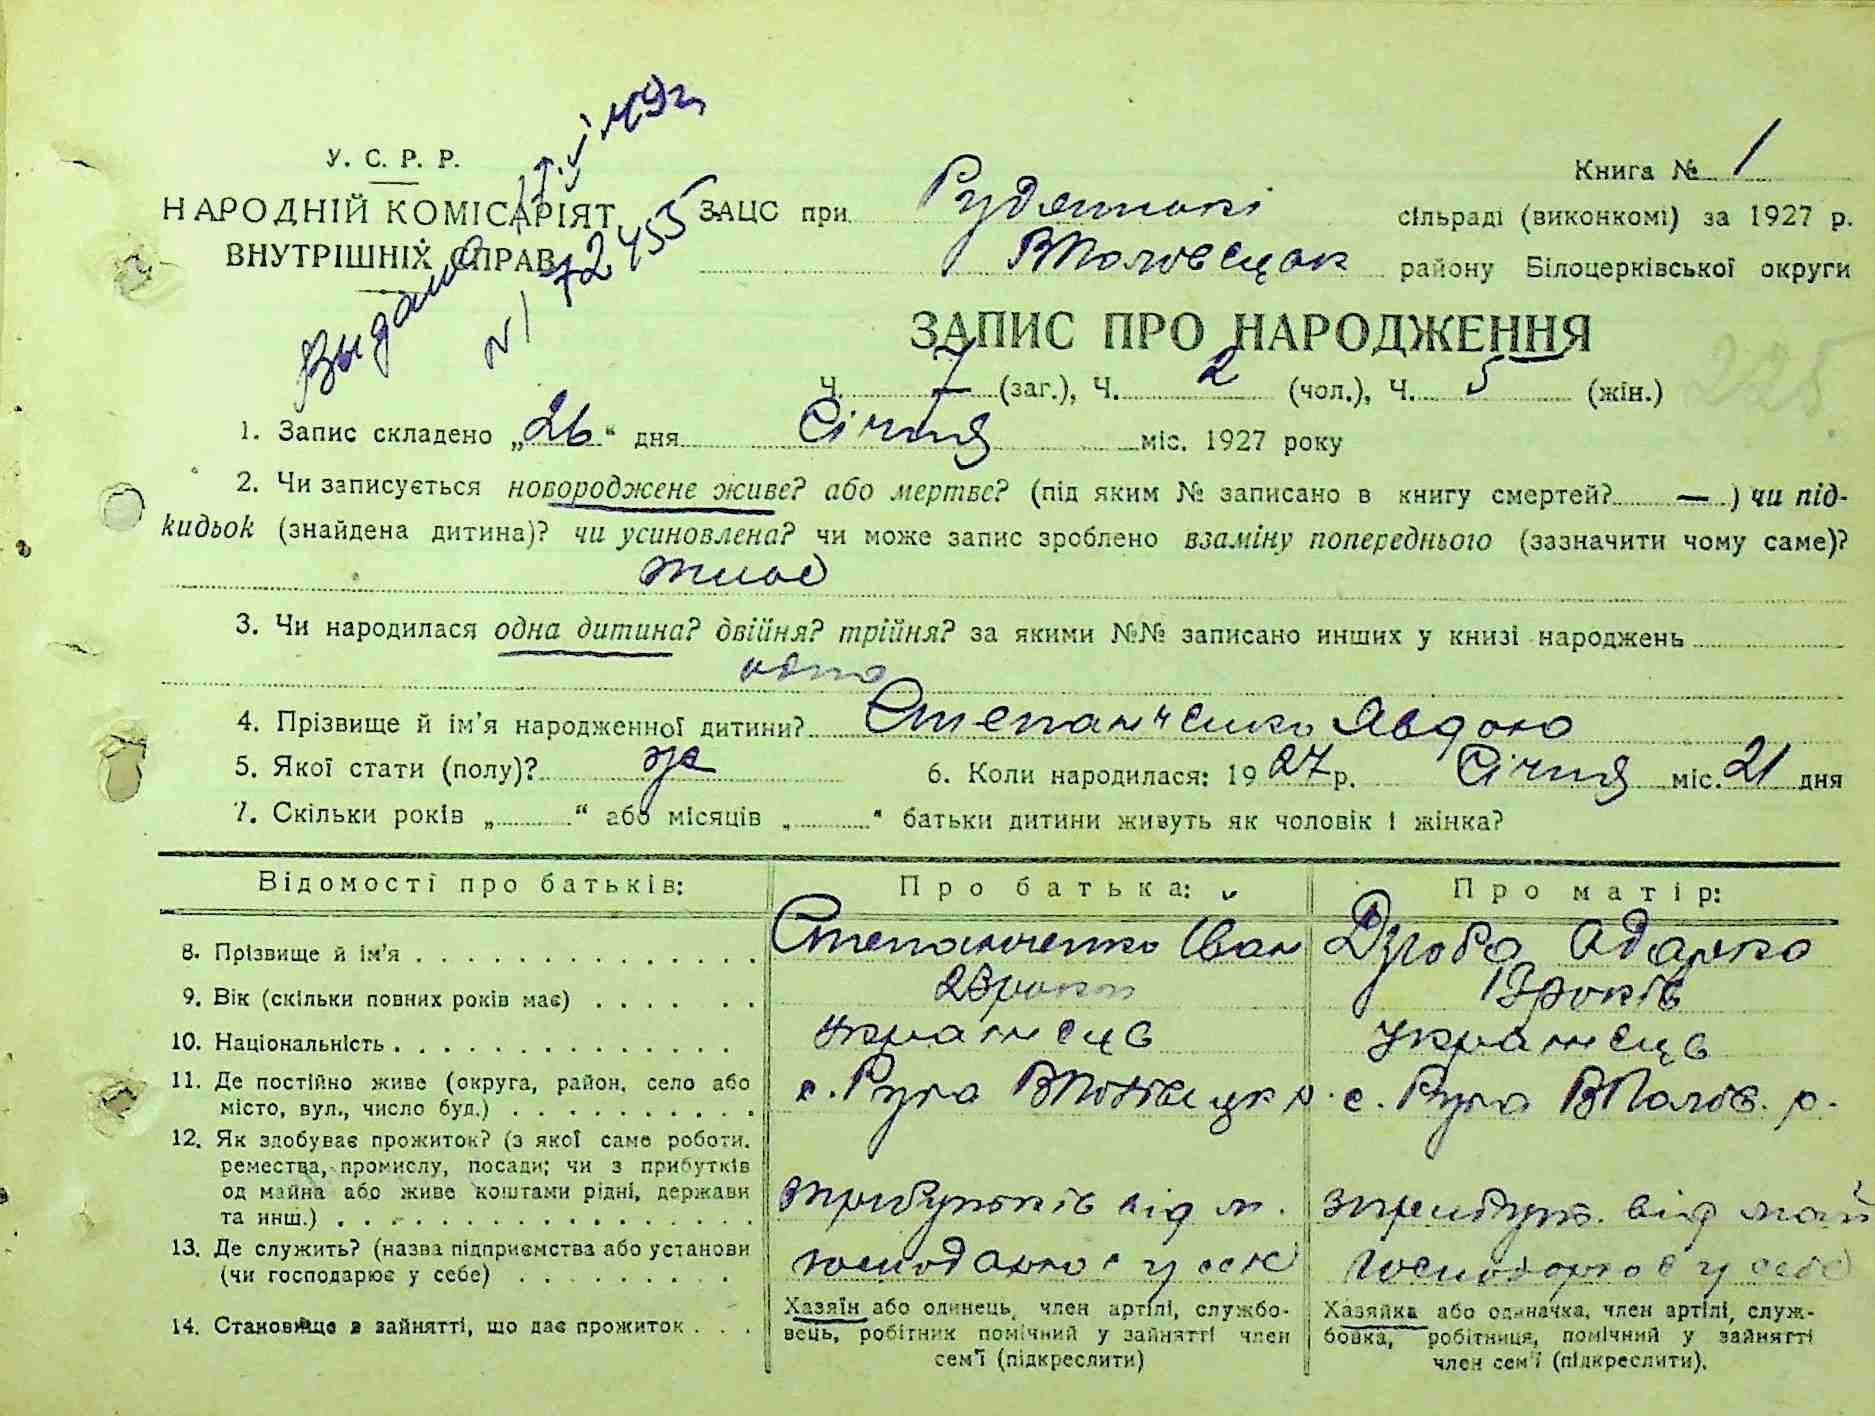 У. С. Р. Р.
НАРОДНІЙ КОМІСАРІЯТ
ВНУТРІШНІХ СПРАВ
N 72455
Книга № 1
ЗАЦС при сільраді (виконкомі) за 1927 р.
району Білоцерківської округи
ЗАПИС ПРО НАРОДЖЕННЯ
Ч. 7 (заг.), Ч. 2 (чол.), Ч. 5 (жін.)
225
1. Запис складено „26“ дня Січня міс. 1927 року
2. Чи записується новороджене живе? або мертве? (під яким № записано в книгу смертей? — ) чи під-
кидьок (знайдена дитина)? чи усиновлена? чи може запис зроблено взаміну попереднього (зазначити чому саме)?
живе
3. Чи народилася одна дитина? двійня? трійня? за якими №№ записано инших у книзі народжень
одна
4. Прізвище й ім’я народженної дитини? Степанченко Явдоха
5. Якої стати (полу)? ж 6. Коли народилася: 1927 р. Січня міс. 21 дня
7. Скільки років „ “ або місяців „ “ батьки дитини живуть як чоловік і жінка?
Відомості про батьків: Про батька: Про матір:
8. Прізвище й ім’я Степанченко Іван Дзюба Одарка
9. Вік (скільки повних років має) 23 роки 19 років
10. Національність українець українець
11. Де постійно живе (округа, район, село або с. Руда ВПоловецк р. с. Руда ВПолов. р.
місто, вул., число буд.)
12. Як здобуває прожиток? (з якої саме роботи,
ремества, промислу, посади; чи з прибутків
од майна або живе коштами рідні, держави з прибутків від м. з прибутк. від май
та инш.)
13. Де служить? (назва підприємства або установи господарює у себе господарює у себе
(чи господарює у себе)
14. Становище в зайнятті, що дає прожиток
Хазяїн або одинець, член артілі, службо-
вець, робітник помічний у зайнятті член
сем’ї (підкреслити)
Хазяйка або одиначка, член артілі, служ-
бовка, робітниця, помічний у зайнятті
член сем’ї (підкреслити).